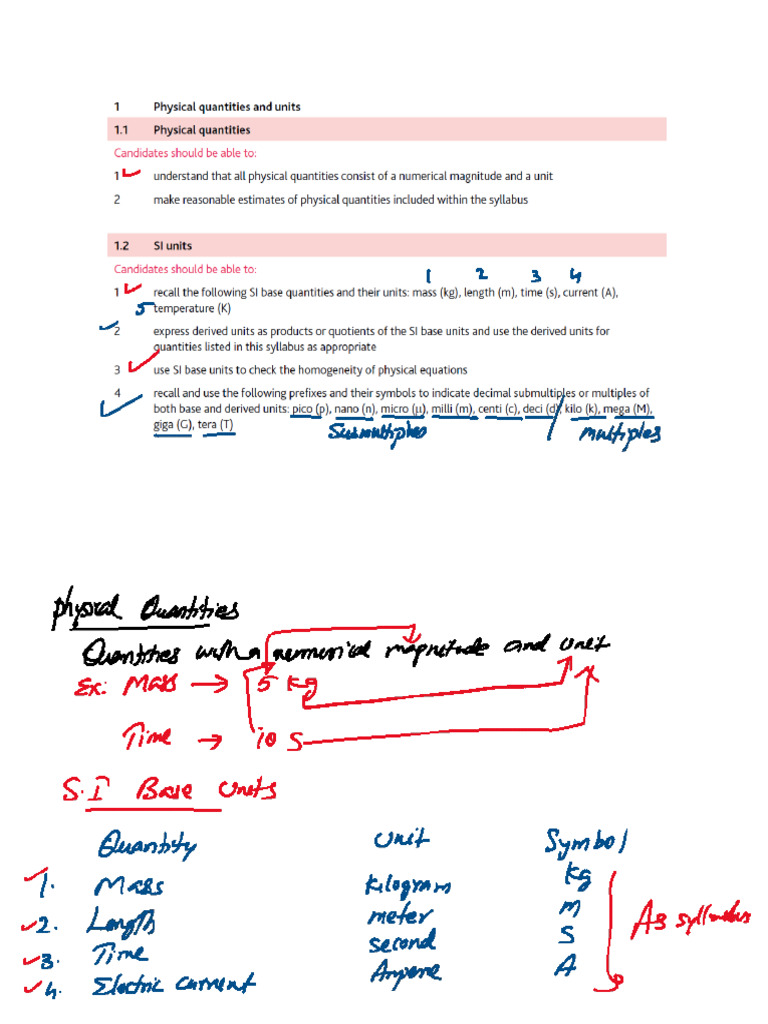 1 Physical quantities and units
1.1 Physical quantities
Candidates should be able to:
1 understand that all physical quantities consist of a numerical magnitude and a unit
2 make reasonable estimates of physical quantities included within the syllabus
1.2 SI units
Candidates should be able to:
1 2 3 4
1 recall the following SI base quantities and their units: mass (kg), length (m), time (s), current (A),
5 temperature (K)
2 express derived units as products or quotients of the SI base units and use the derived units for
quantities listed in this syllabus as appropriate
3 use SI base units to check the homogeneity of physical equations
4 recall and use the following prefixes and their symbols to indicate decimal submultiples or multiples of
both base and derived units: pico (p), nano (n), micro (μ), milli (m), centi (c), deci (d), kilo (k), mega (M),
giga (G), tera (T)
Submultiples multiples
Physical Quantities
Quantities with a numerical magnitude and unit
Ex: Mass → 5 kg
Time → 10 s
S.I Base Units
Quantity Unit Symbol
1. Mass kilogram kg
2. Length meter m
3. Time second s
4. Electric current Ampere A
As syllabus